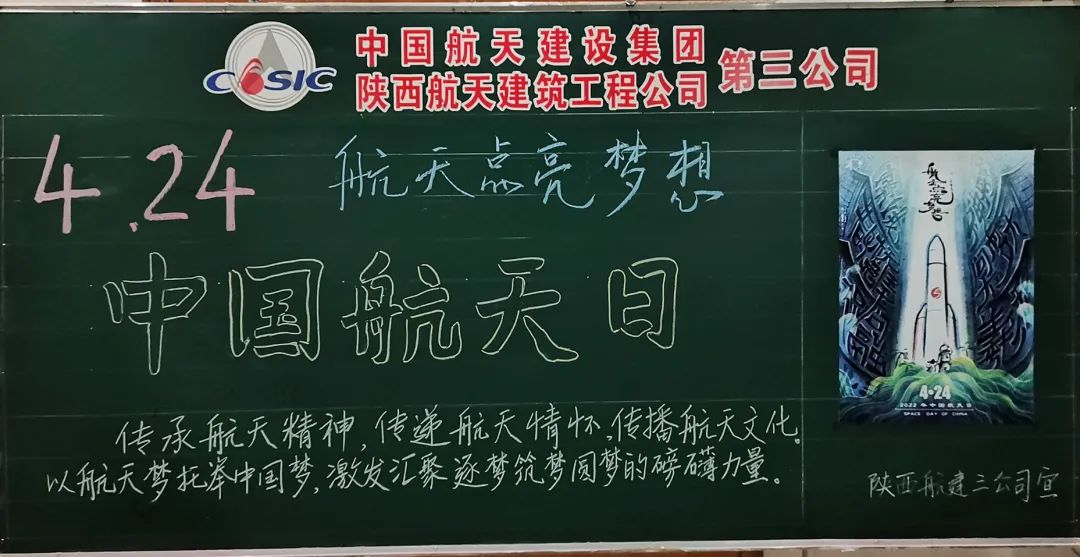 CASIC
中国航天建设集团
陕西航天建筑工程公司
第三公司
4.24
航天点亮梦想
中国航天日
传承航天精神,传递航天情怀,传播航天文化。
以航天梦托举中国梦,激发汇聚逐梦筑梦圆梦的磅礴力量。
航天点亮梦想
4·24
2022年中国航天日
SPACE DAY OF CHINA
陕西航建三公司宣